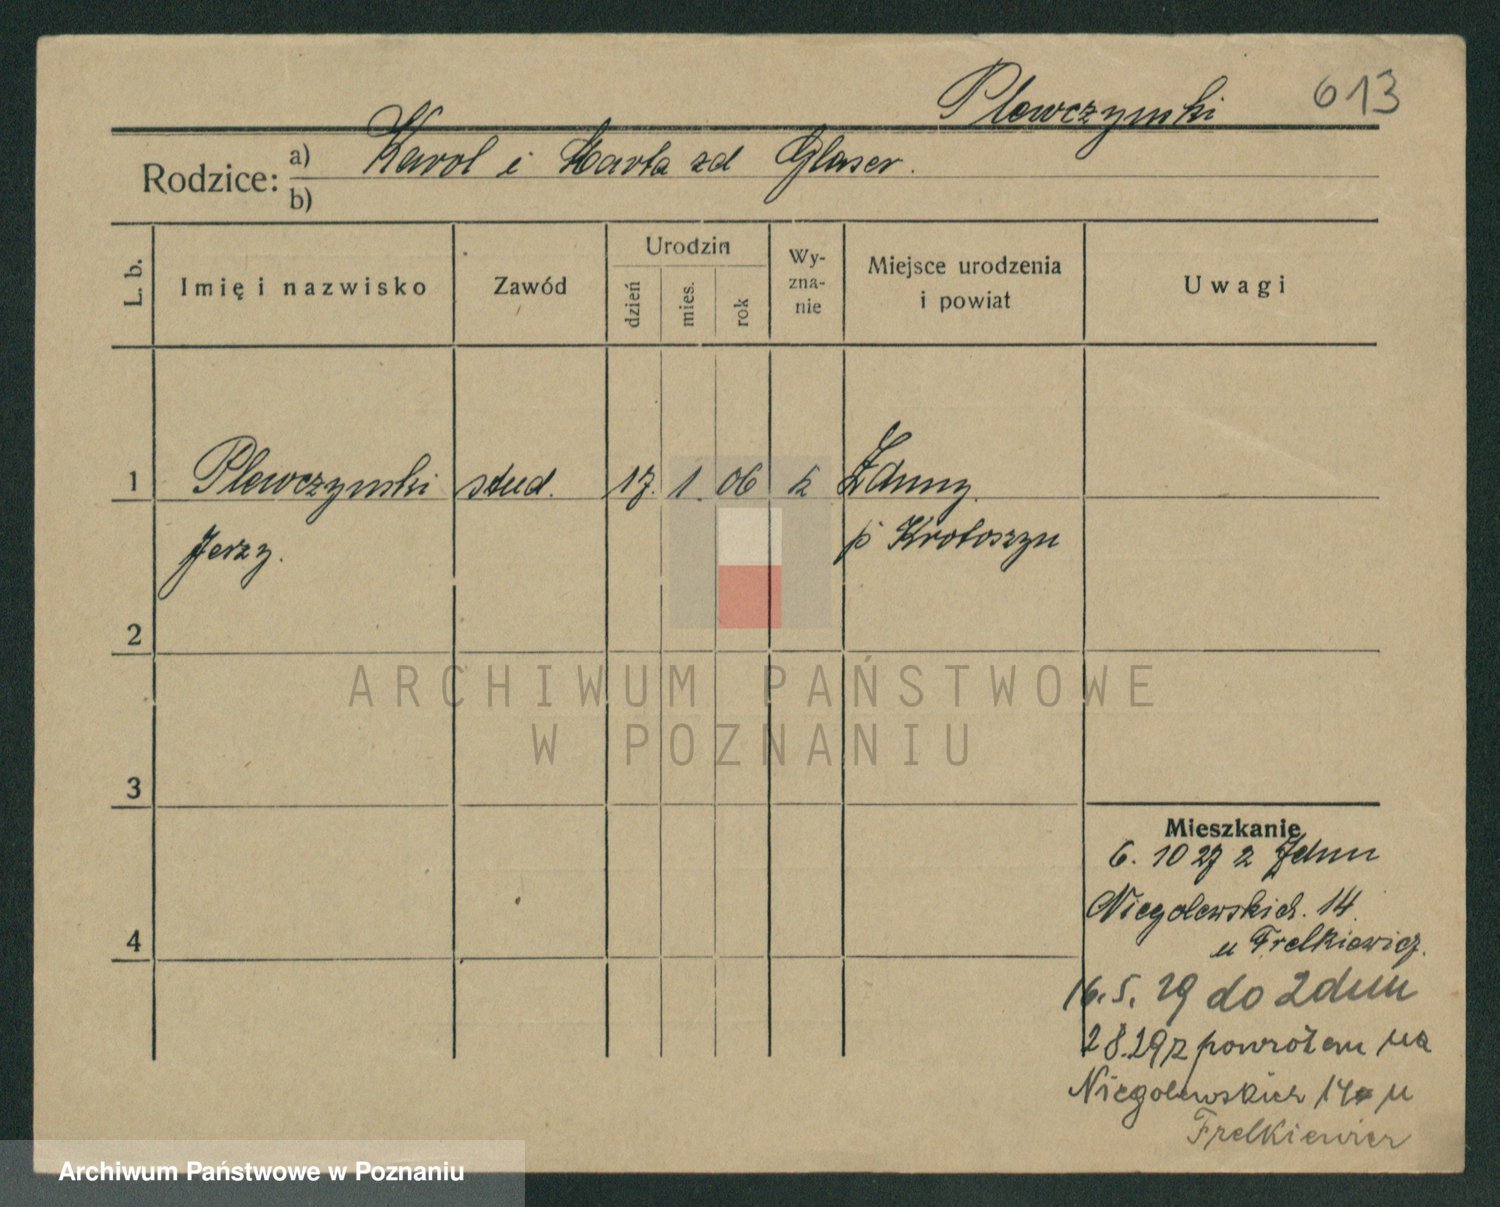 Plewczyński 613
Rodzice: a) Karol i Marta zd Glaser.
b)
L. b. Imię i nazwisko Zawód Urodzin dzień mies. rok Wyznanie Miejsce urodzenia i powiat Uwagi
1 Plewczyński stud. 17. 1. 06 k Zduny
Jerzy. p Krotoszyn
2
ARCHIWUM PAŃSTWOWE
W POZNANIU
3
Mieszkanie
6. 10 27 z Zdun
Niegolewskich. 14.
4
u Frelkiewicz.
16. 5. 29 do Zdun
2 8.29 z powrotem na
Niegolewskich 14 u
Frelkiewicz
Archiwum Państwowe w Poznaniu